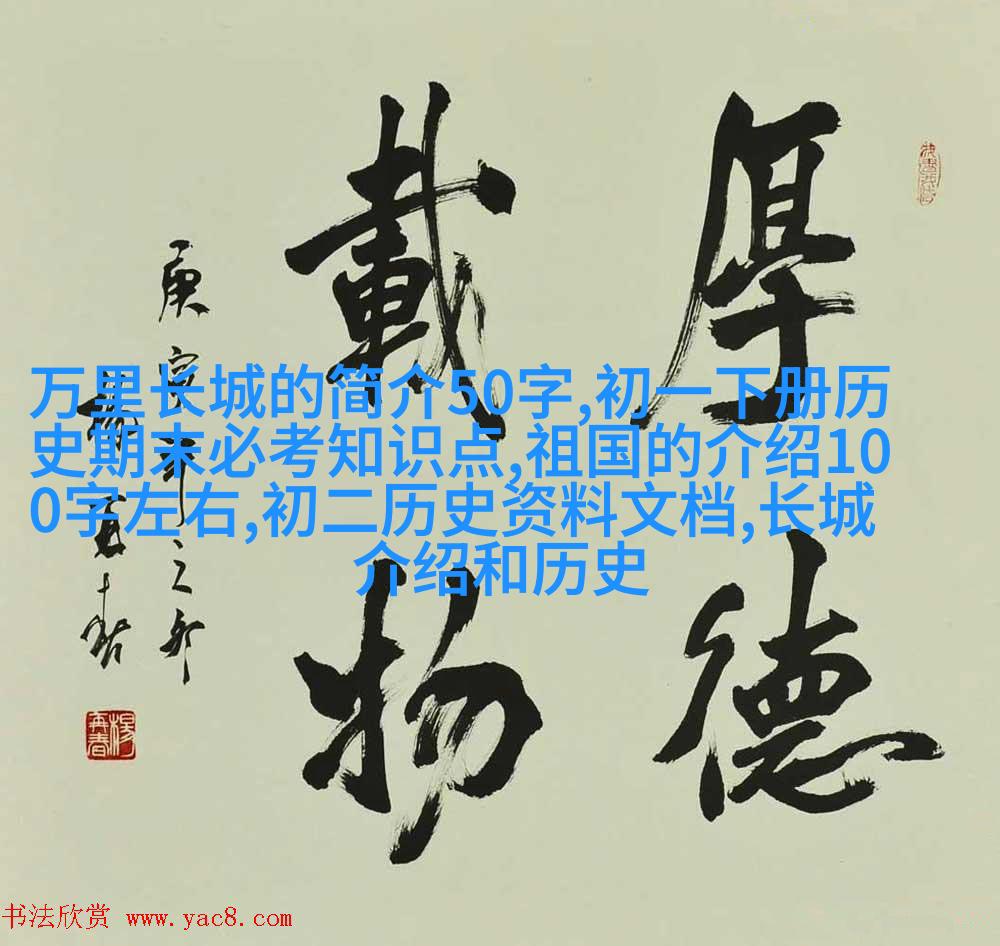 厚德
載物
庚寅年之卯
楊再春
万里长城的简介50字,初一下册历
史期末必考知识点,祖国的介绍10
0字左右,初二历史资料文档,长城
介绍和历史
书法欣赏 www.yac8.com